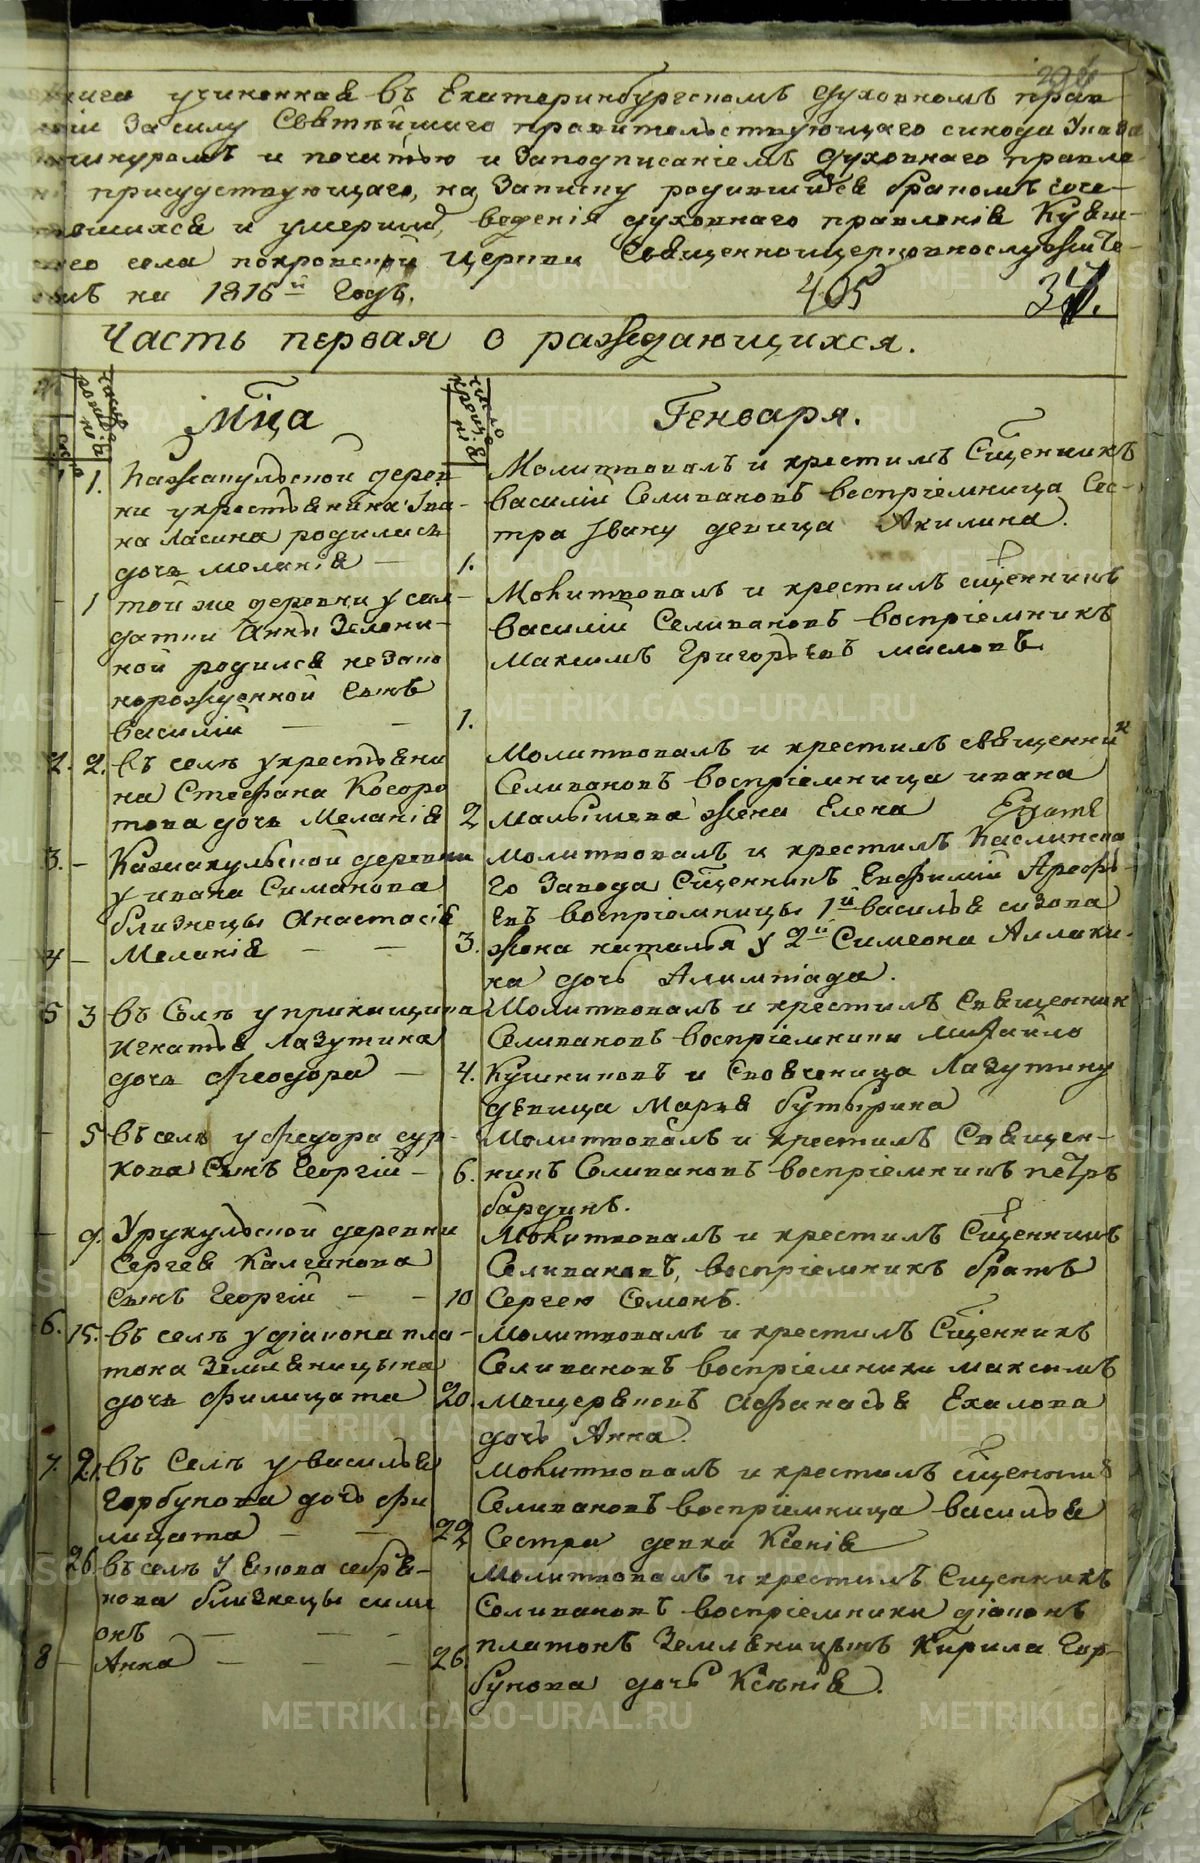 книга учиненная въ Екатеринбургскомъ духовномъ прав
силу Святѣйшаго правительствующаго синода указа
шнуромъ и печатью и заподписаніемъ духовнаго правле-
присудствующаго, на записку родившихся бракомъ соче-
тавшихся и умершихъ, веденія духовнаго правленія Куяш-
скаго села покровской церкви Священноицерковнослужите-
на 1816й годъ.
405
Часть первая о раждающихся.
Мца
Генваря.
1. деревни
ни укрестьянина Ива-
на Ласина родилась
дочь Меланія — 1.
Молитвовалъ и крестилъ Сщенникъ
василій Селивановъ воспріемница Сес-
тра Ивану девица Акилина.
1 той же деревни у сол-
датки Анны
ной родился незако
норожденной сынъ
василій — — 1.
Молитвовалъ и крестилъ сщенникъ
василій Селивановъ воспріемникъ
Максимъ Григорьевъ масловъ
2. 2. въ селѣ укрестьяни
на Стефана Косоро
това дочь Меланія 2
Молитвовалъ и крестилъ священник
Селивановъ воспріемница ивана
Малышева жена Елена
3. — деревни
у ивана Симанова
близнецы Анастасія
4 — Меланія — — 3.
молитвовалъ и крестилъ Каслинска
го завода Сщенникъ Евфимій Арефь-
евъ воспріемницы 1й василья сизова
жена наталья у 2й Симеона
на дочь Алимпіада.
5 3 въ Селѣ уприкащика
Игнатья Лазутина
дочь Феодора — 4.
Молитвовалъ и крестилъ Священник
Селивановъ воспріемники михайло
Кушниковъ и Своеченица Лазутину
девица Марья бутырина
5 въ селѣ у федора сур-
кова Сынъ Георгій — 6.
Молитвовалъ и крестилъ Священ-
никъ Селивановъ воспріемникъ петръ
бардинъ.
9. Урукульской деревни
Сергея Калгинова
Сынъ Георгій — — 10
Молитвовалъ и крестилъ Сщенникъ
Селивановъ, воспріемникъ братъ
Сергею Семонъ.
6. 15. въ селѣ удіакона пла-
тона Земляницына
дочь филицата 20.
Молитвовалъ и крестилъ Сщенникъ
Селивановъ воспріемники максимъ
Мещеряковъ Афанасья Ехлова
дочь Анна.
7. 21. въ Селѣ увасилья
Горбунова дочь фи
лицата — — 22
Молитвовалъ и крестилъ сщенникъ
Селивановъ воспріемница василья
Сестра девка Ксенія
26 въ селѣ У
близнецы сими
онъ — — —
8 — Анна — — — 26.
Молитвовалъ и крестилъ Сщенникъ
Селивановъ воспріемники діаконъ
платонъ Земляницынъ Кирила Гор-
бунова дочь Ксѣнія.
METRIKI.GASO-URAL.RU